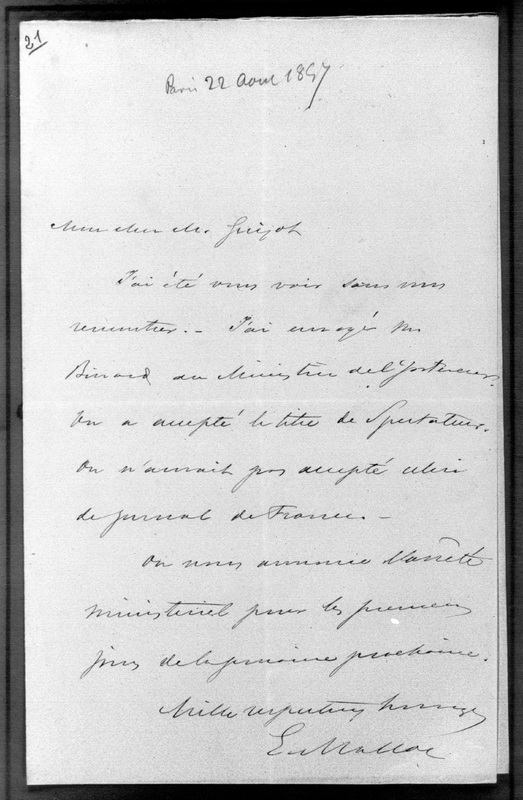 21
Paris 22 Aout 1857
Mon cher Mr. Guizot
J'ai été vous voir sans vous
rencontrer. – J'ai envoyé Mr
au Ministère de l'Intérieur.
On a accepté le titre de Spectateur.
On n'aurait pas accepté celui
de Journal de France. –
On nous annonce l'arrêté
ministériel pour les premiers
jours de la semaine prochaine.
Mille respectueux hommages
E. Mallac